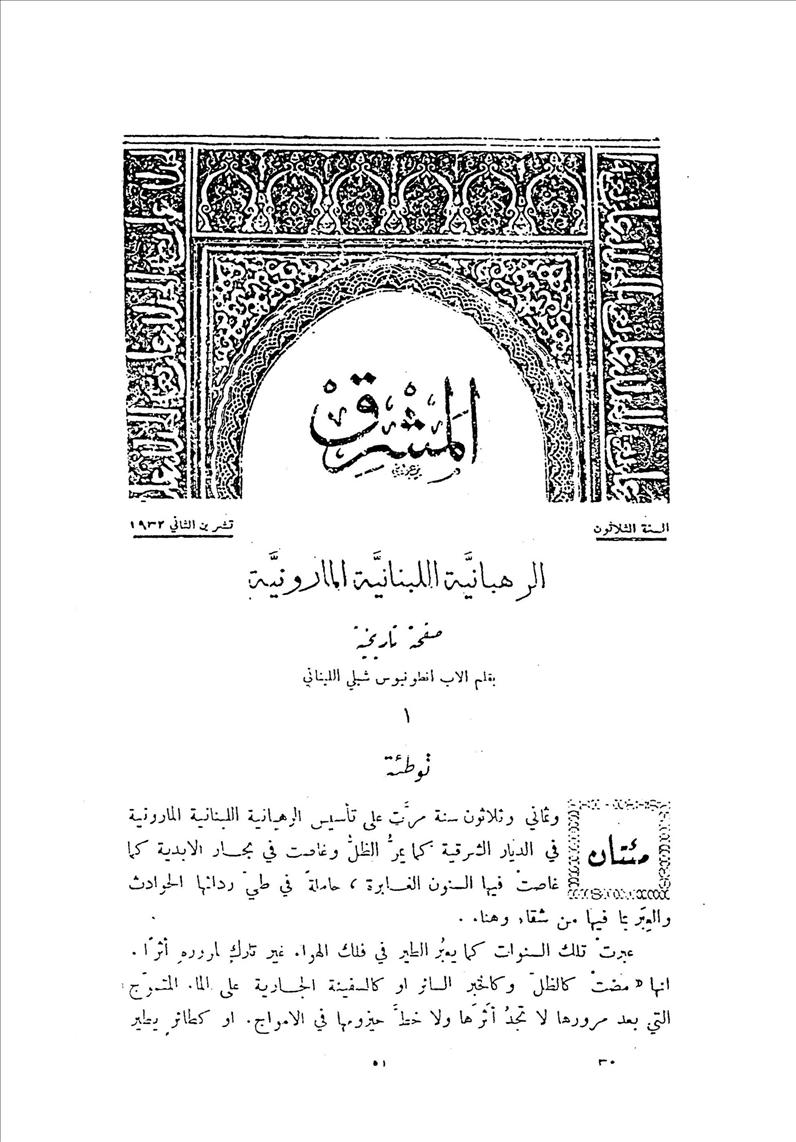 المشرق
السنة الثلاثون
تشرين الثاني ١٩٣٢
الرهبانيَّة اللبنانيَّة المارونيَّة
صفحة تاريخية
بقلم الاب انطونيوس شبلي اللبناني
١
توطئة
مئتان وثماني وثلاثون سنة مرَّت على تأسيس الرهبانية اللبنانية المارونية
في الديار الشرقية كما يمرُّ الظلُّ وغاصت في بحار الابدية كما
غاصتْ فيها السنون الغابرة ، حاملةً في طيّ ردائها الحوادث
والعِبَر بما فيها من شقاء وهناء .
عبرتْ تلك السنوات كما يعبُر الطير في فلك الهواء غير تاركٍ لمروره أثرًا .
انها « مضتْ كالظلّ وكالخبر السائر او كالسفينة الجارية على الماء المتموّج
التي بعد مرورها لا تجدُ أثَرَها ولا خطَّ حيزومها في الامواج . او كطائرٍ يطير
٣٠
٥١